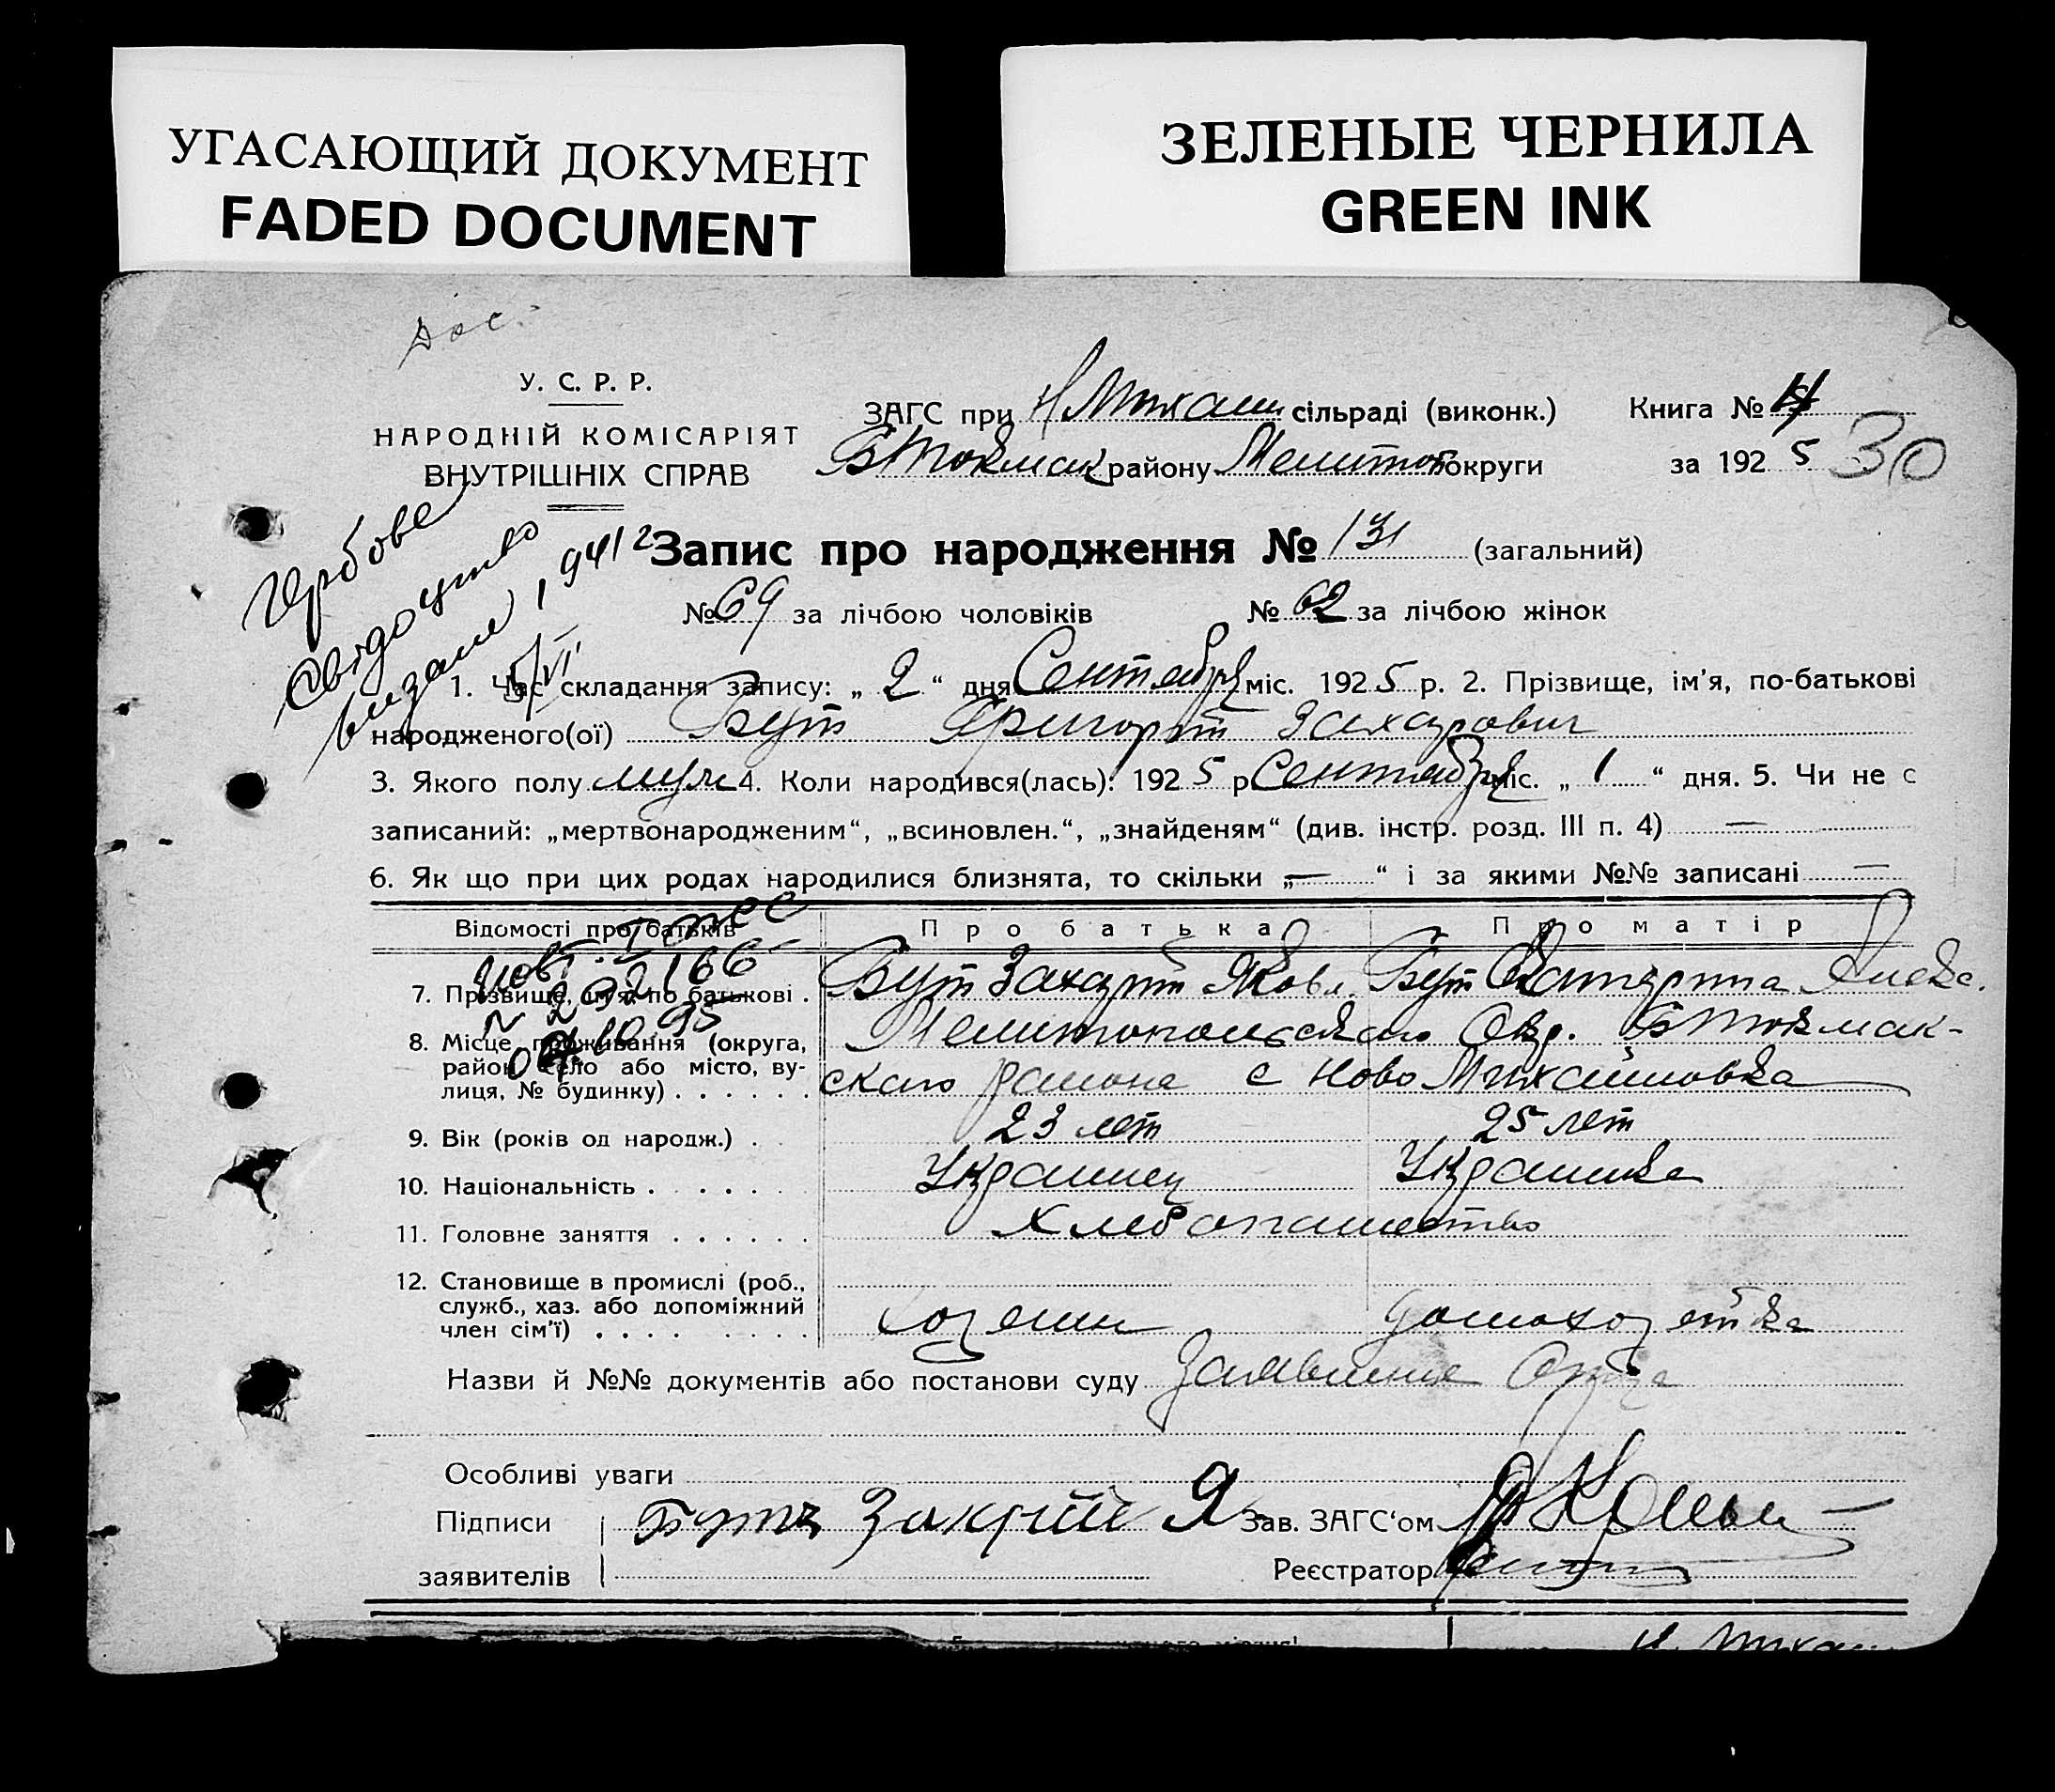 УГАСАЮЩИЙ ДОКУМЕНТ
FADED DOCUMENT
ЗЕЛЕНЫЕ ЧЕРНИЛА
GREEN INK
У. С. Р. Р.
НАРОДНІЙ КОМІСАРІЯТ
ВНУТРІШНІХ СПРАВ
ЗАГС при Н Михайл сільраді (виконк.)
Книга №
Б Токмак району Мелитоп округи
за 1925
30
Гербове
свідоцтво
видане 1941 2
5/VI
Запис про народження № 131 (загальний)
№ 69 за лічбою чоловіків № 62 за лічбою жінок
1. Час складання запису: „ 2 “ дня Сентября міс. 1925 р. 2. Прізвище, ім'я, по-батькові
народженого(ої) Бут Григорій Захарович
3. Якого полу муж 4. Коли народився(лась): 1925 р Сентября міс. „ 1 “ дня. 5. Чи не є
записаний: „мертвонародженим“, „всиновлен.“, „знайденям“ (див. інстр. розд. III п. 4) —
6. Як що при цих родах народилися близнята, то скільки „—“ і за якими №№ записані —
Відомості про батьків Про батька Про матір
7. Прізвище, ім'я, по батькові . Бут Захарій Яковл. Бут Катерина Алекс.
8. Місце проживання (округа, Мелитопольская Окр. Б Токмак-
район, село або місто, ву-
лиця, № будинку) . . . . . . ского района с Ново Михайловка
9. Вік (років од народж.) . 23 лет 25 лет
10. Національність . . . . . Украинец Украинка
11. Головне заняття . . . . . . Хлебопашество
12. Становище в промислі (роб.,
служб., хаз. або допоміжний
член сім'ї) . . . . . . . . Хозяин домохозяйка
Назви й №№ документів або постанови суду Заявление Отца
Особливі уваги
Підписи Бутъ Захрій Я Зав. ЗАГС‘ом
заявителів Реєстратор